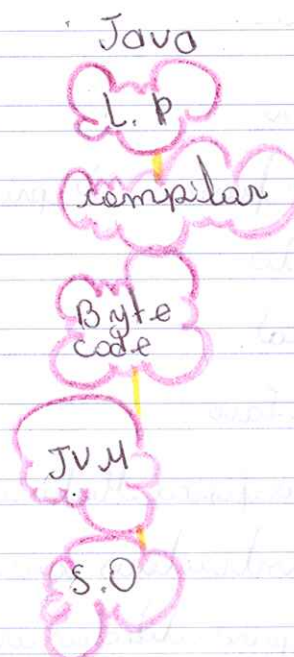 Java
L.P
compilar
Byte
code
JVM
S.O